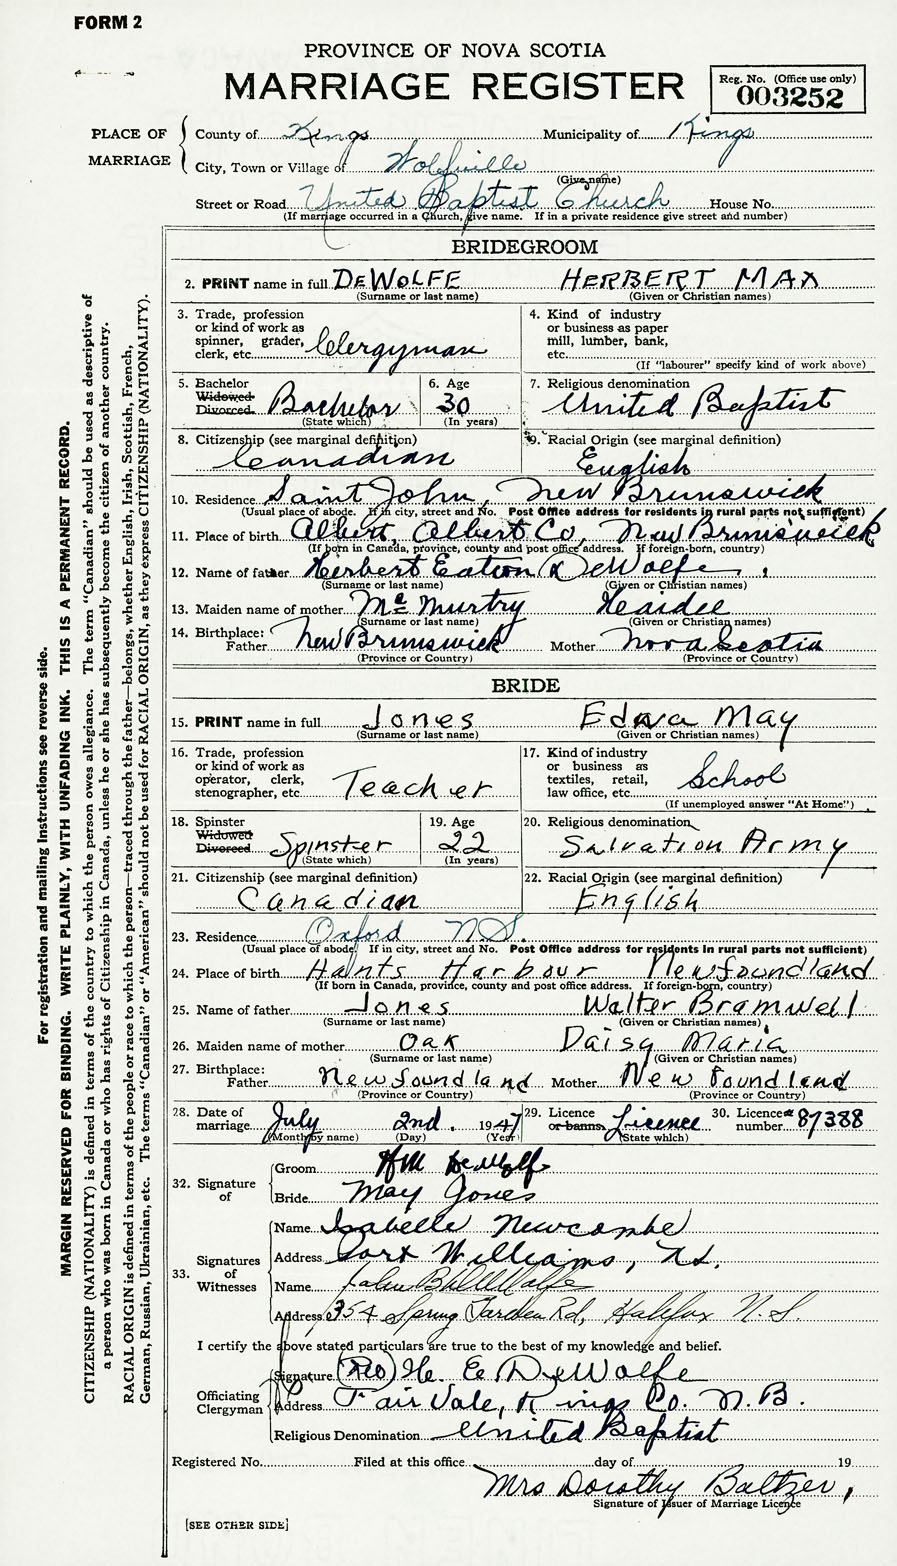 FORM 2
PROVINCE OF NOVA SCOTIA
MARRIAGE REGISTER
Reg. No. (Office use only)
003252
PLACE OF MARRIAGE
County of Kings Municipality of Kings
City, Town or Village of Wolfville
(Give name)
Street or Road United Baptist Church House No.
(If marriage occurred in a Church, give name. If in a private residence give street and number)
BRIDEGROOM
2. PRINT name in full DEWOLFE HERBERT MAX
(Surname or last name) (Given or Christian names)
3. Trade, profession or kind of work as spinner, grader, clerk, etc. Clergyman
4. Kind of industry or business as paper mill, lumber, bank, etc.
(If "labourer" specify kind of work above)
5. Bachelor Widowed Divorced Bachelor
(State which)
6. Age 30
(In years)
7. Religious denomination United Baptist
8. Citizenship (see marginal definition) Canadian
9. Racial Origin (see marginal definition) English
10. Residence Saint John, New Brunswick
(Usual place of abode. If in city, street and No. Post Office address for residents in rural parts not sufficient)
11. Place of birth Albert, Albert Co, New Brunswick
(If born in Canada, province, county and post office address. If foreign-born, country)
12. Name of father Herbert Eaton DeWolfe
(Surname or last name) (Given or Christian names)
13. Maiden name of mother McMurtry Haidee
(Surname or last name) (Given or Christian names)
14. Birthplace: Father New Brunswick Mother Nova Scotia
(Province or Country) (Province or Country)
BRIDE
15. PRINT name in full Jones Edna May
(Surname or last name) (Given or Christian names)
16. Trade, profession or kind of work as operator, clerk, stenographer, etc. Teacher
17. Kind of industry or business as textiles, retail, law office, etc. School
(If unemployed answer "At Home")
18. Spinster Widowed Divorced Spinster
(State which)
19. Age 22
(In years)
20. Religious denomination Salvation Army
21. Citizenship (see marginal definition) Canadian
22. Racial Origin (see marginal definition) English
23. Residence Oxford N.S.
(Usual place of abode. If in city, street and No. Post Office address for residents in rural parts not sufficient)
24. Place of birth Hants Harbour Newfoundland
(If born in Canada, province, county and post office address. If foreign-born, country)
25. Name of father Jones Walter Bramwell
(Surname or last name) (Given or Christian names)
26. Maiden name of mother Oak Daisy Maria
(Surname or last name) (Given or Christian names)
27. Birthplace: Father Newfoundland Mother Newfoundland
(Province or Country) (Province or Country)
28. Date of marriage July 2nd. 1947
(Month by name) (Day) (Year)
29. Licence or banns Licence
(State which)
30. Licence number #87388
32. Signature of
Groom H M DeWolfe
Bride May Jones
33. Signatures of Witnesses
Name Isabelle Newcombe
Address Port Williams, N.S.
Name DeWolfe
Address 354 Spring Garden Rd, Halifax N.S.
I certify the above stated particulars are true to the best of my knowledge and belief.
Officiating Clergyman
Signature (Rev) H. E. DeWolfe
Address Fair Vale, Kings Co. N.B.
Religious Denomination United Baptist
Registered No. Filed at this office day of 19
Mrs Dorothy Baltzer,
Signature of Issuer of Marriage Licence
[SEE OTHER SIDE]
For registration and mailing instructions see reverse side.
MARGIN RESERVED FOR BINDING. WRITE PLAINLY, WITH UNFADING INK. THIS IS A PERMANENT RECORD.
CITIZENSHIP (NATIONALITY) is defined in terms of the country to which the person owes allegiance. The term "Canadian" should be used as descriptive of
a person who was born in Canada or who has rights of Citizenship in Canada, unless he or she has subsequently become the citizen of another country.
RACIAL ORIGIN is defined in terms of the people or race to which the person—traced through the father—belongs, whether English, Irish, Scottish, French,
German, Russian, Ukrainian, etc. The terms "Canadian" or "American" should not be used for RACIAL ORIGIN, as they express CITIZENSHIP (NATIONALITY).